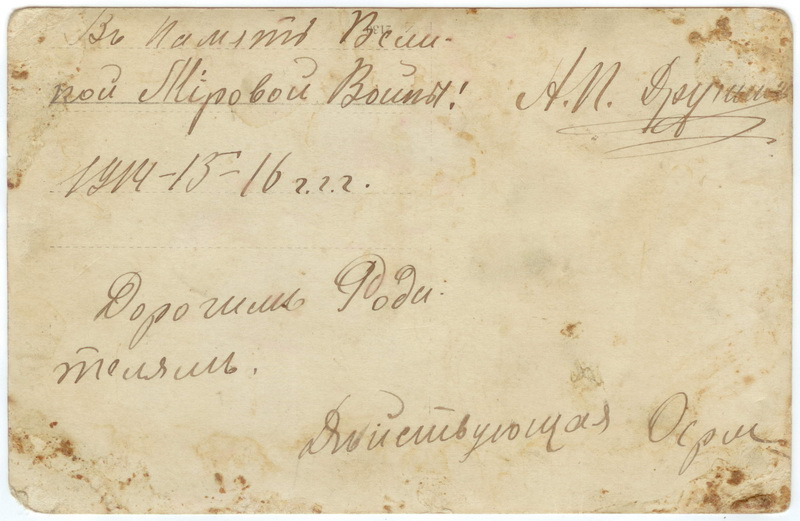 Въ Память Вели-
кой Міровой Войны! А.П.
1914-15-16 г.г.г.
Дорогимъ Роди-
телямъ.
Дѣйствующая